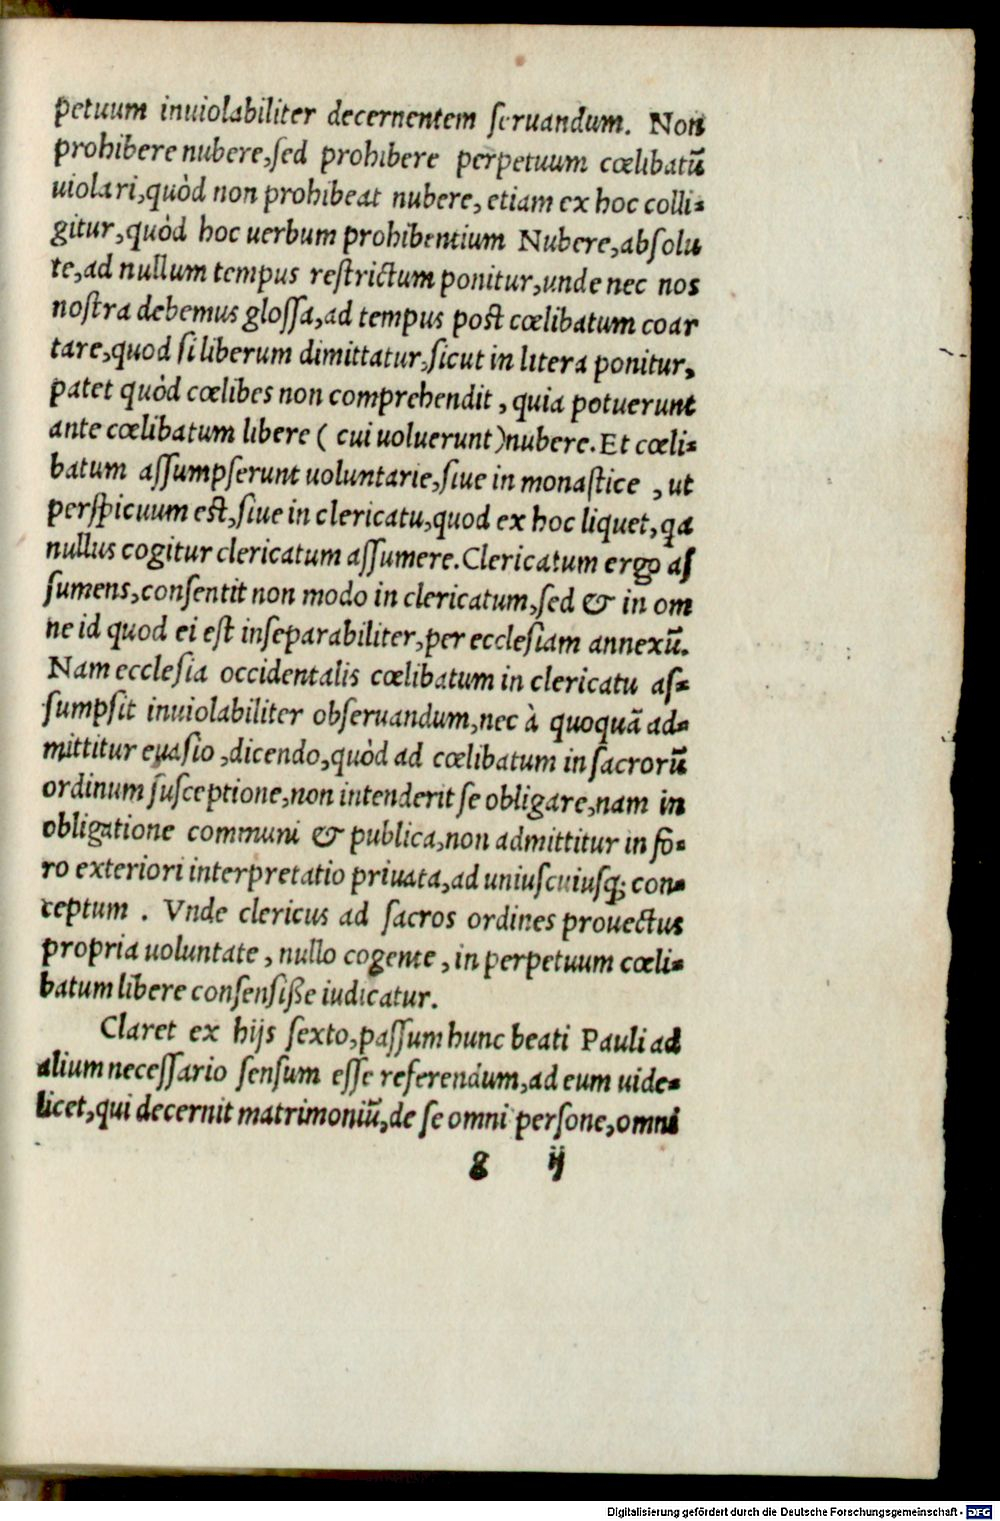 petuum inuiolabiliter decernentem ſeruandum. Non
prohibere nubere,ſed prohibere perpetuum cœlibatū
uiolari,quòd non prohibeat nubere, etiam ex hoc colli-
gitur,quòd hoc uerbum prohibentium Nubere,abſolu
te,ad nullum tempus reſtrictum ponitur,unde nec nos
noſtra debemus gloſſa,ad tempus poſt cœlibatum coar
tare,quod ſi liberum dimittatur,ſicut in litera ponitur,
patet quòd cœlibes non comprehendit , quia potuerunt
ante cœlibatum libere ( cui uoluerunt)nubere.Et cœli-
batum aſſumpſerunt uoluntarie,ſiue in monaſtice , ut
perſpicuum eſt,ſiue in clericatu,quod ex hoc liquet,qa
nullus cogitur clericatum aſſumere.Clericatum ergo aſ
ſumens,conſentit non modo in clericatum,ſed & in om
ne id quod ei eſt inſeparabiliter,per eccleſiam annexū.
Nam eccleſia occidentalis cœlibatum in clericatu aſ-
ſumpſit inuiolabiliter obſeruandum,nec à quoquā ad-
mittitur euaſio ,dicendo,quòd ad cœlibatum in ſacrorū
ordinum ſuſceptione,non intenderit ſe obligare,nam in
obligatione communi & publica,non admittitur in fo-
ro exteriori interpretatio priuata,ad uniuſcuiuſq; con-
ceptum . Vnde clericus ad ſacros ordines prouectus
propria uoluntate , nullo cogente , in perpetuum cœli-
batum libere conſenſiſſe iudicatur.
Claret ex hijs ſexto,paſſum hunc beati Pauli ad
alium neceſſario ſenſum eſſe referendum,ad eum uide-
licet,qui decernit matrimoniū,de ſe omni perſone,omni
g ij
Digitalisierung gefördert durch die Deutsche Forschungsgemeinschaft - DFG